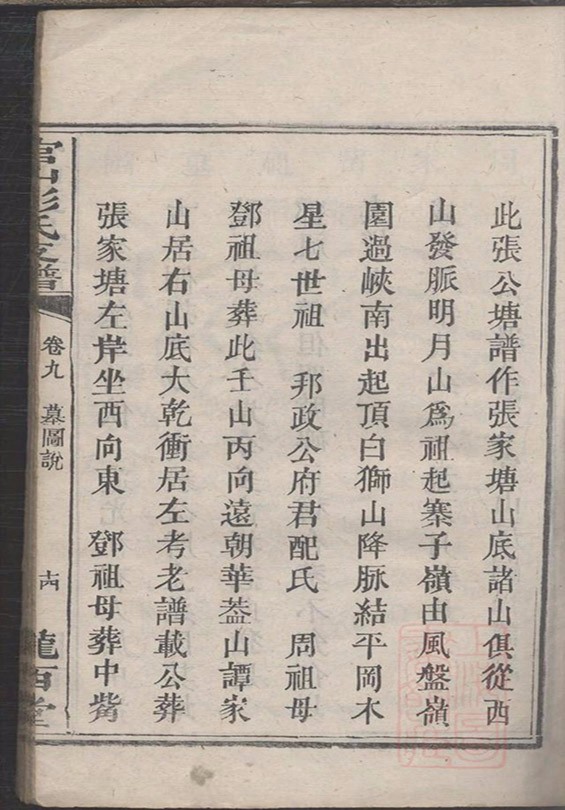 此張公塘譜作張家塘山底諸山俱從西
山發脈明月山爲祖起寨子嶺由風盤嶺
園過峽南出起頂白獅山降脉結平岡木
星七世祖　邦政公府君配氏　周祖母
鄧祖母葬此壬山丙向遠朝華葢山譚家
山居右山底大乾衝居左考老譜載公葬
張家塘左岸坐西向東　鄧祖母葬中觜
官山彭氏支譜
卷九　墓圖說
十四
隴西堂